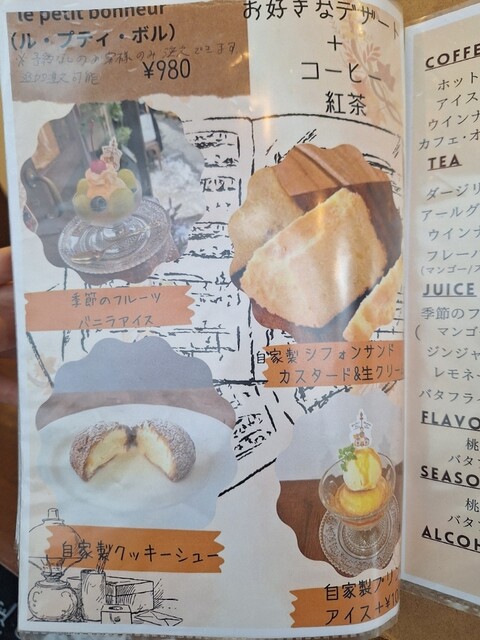 le petit bonheur
(ル・プティ・ボル)
¥980
お好きなデザート
+
コーヒー
紅茶
季節のフルーツ
バニラアイス
自家製シフォンサンド
カスタード&生クリー
自家製クッキーシュー
自家製プリ
アイス+¥10
COFFE
ホット
アイス
ウインナ
カフェ・オ
TEA
ダージリ
アールグ
ウインナ
フレーバ
(マンゴー/ス
JUICE
季節のフ
( マンゴ
ジンジャ
レモネー
バタフラ
FLAVO
桃
バタ
SEASO
桃
バタ
ALCOH